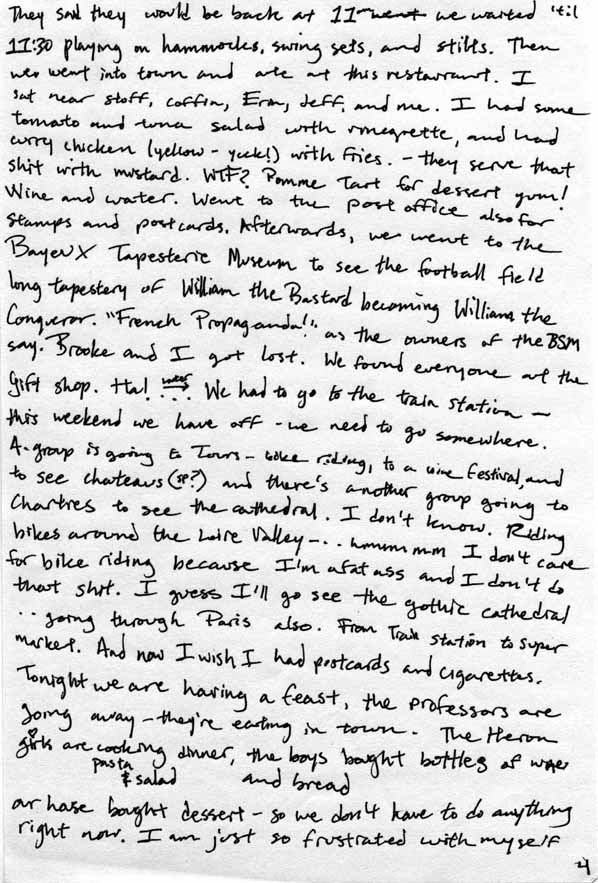 They said they would be back at 11 went we waited 'til
11:30 playing on hammocks, swing sets, and stilts. Then
we went into town and ate at this restaurant. I
sat near Stoff, Coffin, Erin, Jeff, and me. I had some
tomato and tuna salad with vinegrette, and had
curry chicken (yellow - yuck!) with fries. - they serve that
shit with mustard. WTF? Pomme Tart for dessert yum!
Wine and water. Went to the post office also for
stamps and postcards. Afterwards, we went to the
Bayeux Tapesterie Museum to see the football field
long tapestery of William the Bastard becoming William the
Conqueror. "French Propaganda!" as the owners of the BSM
say. Brooke and I got lost. We found everyone at the
gift shop. Ha! We had to go to the train station -
this weekend we have off - we need to go somewhere.
A group is going to Tours - bike riding, to a wine festival, and
to see chateaus (sp?) and there's another group going to
Chartres to see the cathedral. I don't know. Riding
bikes around the Loire Valley - .. hmmm mm I don't care
for bike riding because I'm a fat ass and I don't do
that shit. I guess I'll go see the gothic cathedral
.. going through Paris also. From Train station to super
market. And now I wish I had postcards and cigarettes.
Tonight we are having a feast, the professors are
going away - they're eating in town. The Heron
girls are cooking dinner, the boys bought bottles of
pasta & salad and bread
our house bought dessert - so we don't have to do anything
right now. I am just so frustrated with myself